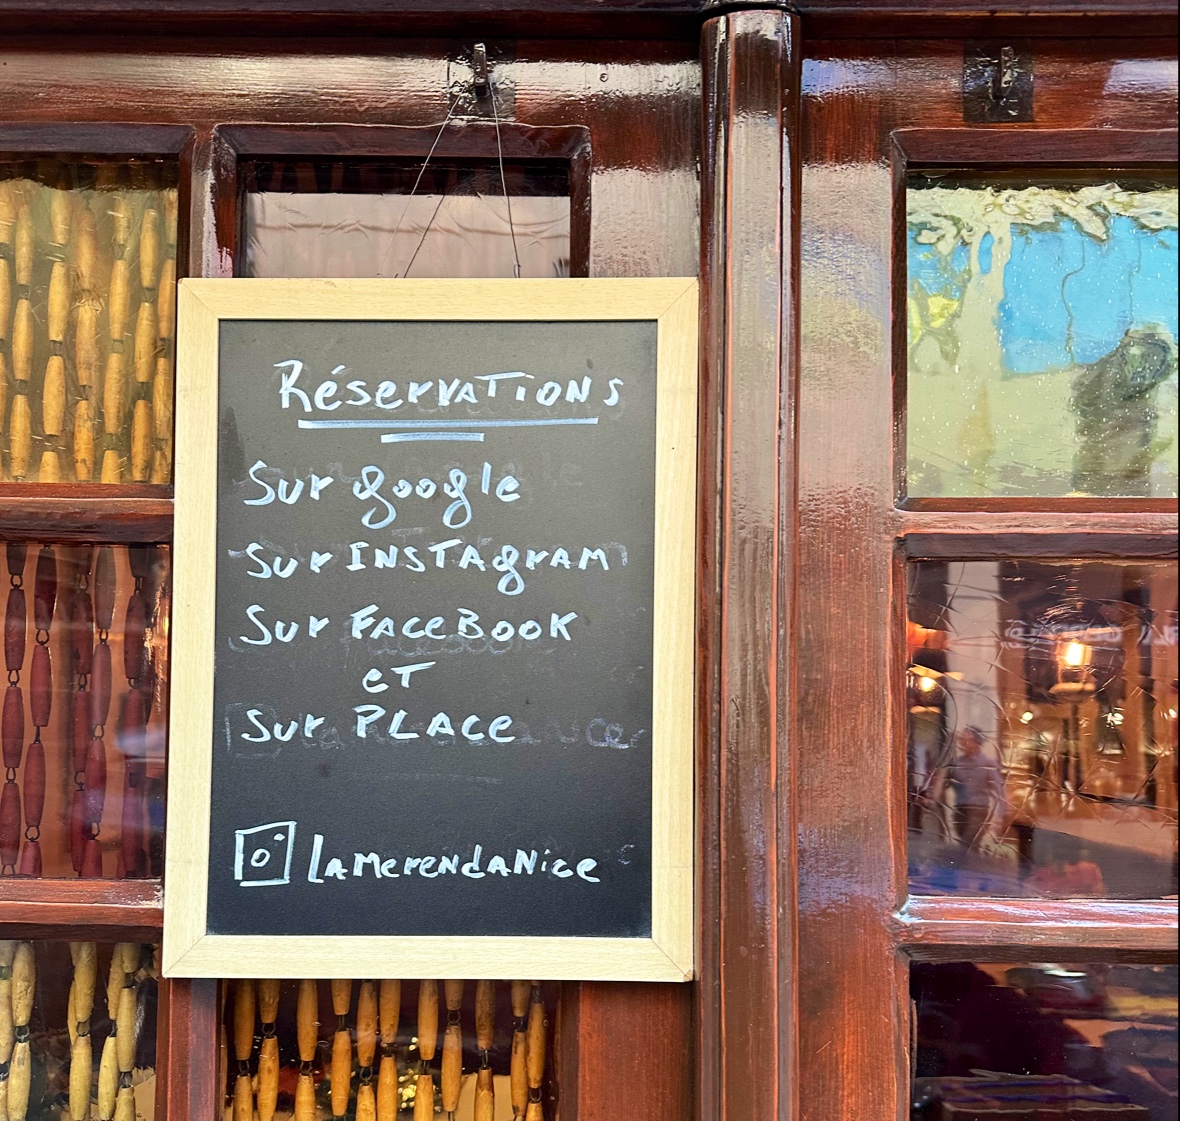 Réservations
Sur google
Sur INSTAgram
Sur FaceBook
et
Sur PLACe
laMerendaNice